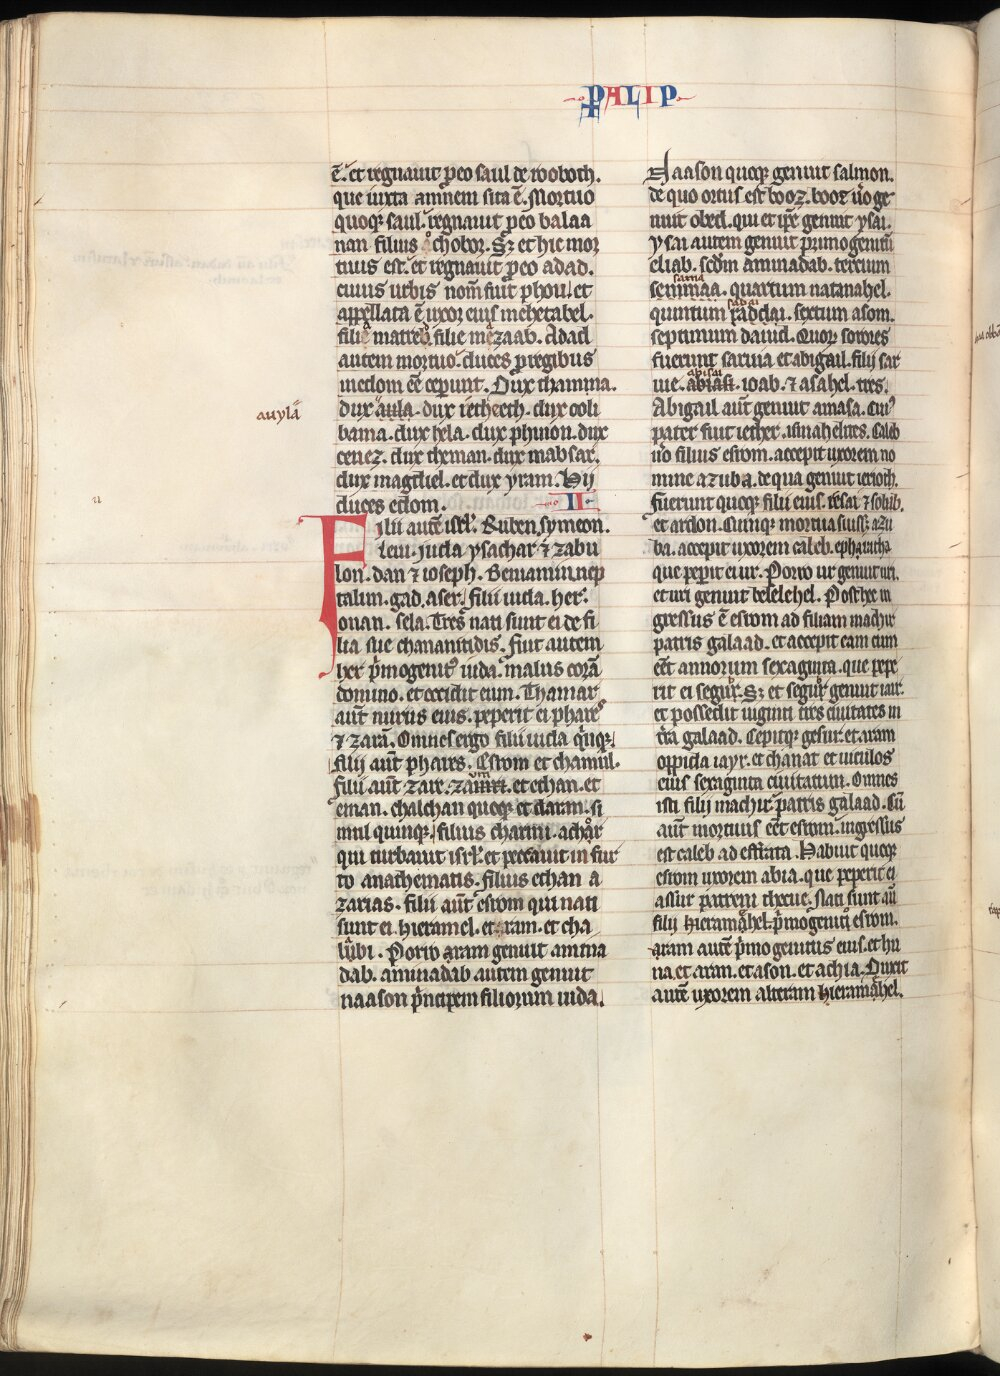 PALIP
ē. et regnauit ꝓeo saul de rooboth.
que iuxta amnem sita ē. Mortuo
quoqꝫ saul. regnauit ꝓeo balaa
nan filius achobor. Sꝫ et hic mor
tuus est. et regnauit ꝓeo adad.
cuius urbis nom̄ fuit phou. et
appellata ē uxor eius mehetabel.
filia matred. filie mezaab. Adad
autem mortuo. duces ꝓregibus
inedom eē ceperunt. Dux thamna.
auyla
dux aula. dux ietheth. dux ooli
bama. dux hela. dux phinon. dux
cenez. dux theman. dux mabsar.
dux magdiel. et dux yram. Hij
duces edom. II
Filii autē isrl'. Ruben. symeon.
leui. iuda ysachar ⁊ zabu
lon. dan ⁊ ioseph. Beniamin. nep
talim. gad. aser. filii iuda. her.
onan. sela. Tres nati sunt ei de fi
lia sue chananitidis. Fuit autem
her p̄mogenitꝰ iuda. malus corā
domino. et occidit eum. Thamar
aut̄ nurus eius. peperit ei phares
⁊ zarā. Omnes ergo filii iuda quīqꝫ.
filij aut̄ phares. Esrom et chamul.
filii aut̄ zare. zamri. et ethan. et
eman. chalchan quoqꝫ et daram. si
mul quinqꝫ. filius charmi. achar
qui turbauit isrl'. et peccauit in fur
to anathematis. filius ethan a
zarias. filii aut̄ esrom qui nati
sunt ei. hieramel. et aram. et cha
lubi. Porro aram genuit amina
dab. aminadab autem genuit
naason p̄ncipem filiorum iuda.
Naason quoqꝫ genuit salmon.
de quo ortus est booz. booz ūo ge
nuit obed. qui et ip̄e genuit ysai.
ysai autem genuit primogenitū
eliab. scdm aminadab. tercium
sama
semmaa. quartum natanahel.
sadai
quintum raddai. sextum asom.
septimum dauid. Quor sorores
fuerunt saruia et abigail. filij sar
abisai
uie. abiasi. ioab. ⁊ asahel. tres.
Abigail aut̄ genuit amasa. cuiꝰ
pater fuit iether. ismahelites. Caleb
ūo filius esrom. accepit uxorem no
mine azuba. de qua genuit ierioth.
fuerunt quoqꝫ filii eius. iesar. ⁊ sobib.
et ardon. Cumqꝫ mortua fuiss; azu
ba. accepit uxorem caleb. ephratha
que peperit ei ur. Porro ur genuit uri.
et uri genuit beselehel. Post hec in
gressus ē esrom ad filiam machir
patris galaad. et accepit eam cum
eēt annorum sexaginta. que pepe
rit ei segub. Sꝫ et segub genuit iair.
et possedit uiginti tres ciuitates in
tr̄a galaad. Cepitqꝫ gesur. et aram
oppida iayr. et chanat et uiculos
eius sexaginta ciuitatum. Omnes
isti filij machir patris galaad. Cū
aut̄ mortuus eēt esrom. ingressus
est caleb ad effrata. Habuit quoqꝫ
esrom uxorem abia. que peperit ei
assur patrem thecue. Nati sunt aū
filij hieramahel. p̄mogeniti esrom.
aram autē p̄mogenitus eius. et bu
na. et aran. et ason. et achia. Duxit
autē uxorem alteram hieramahel.